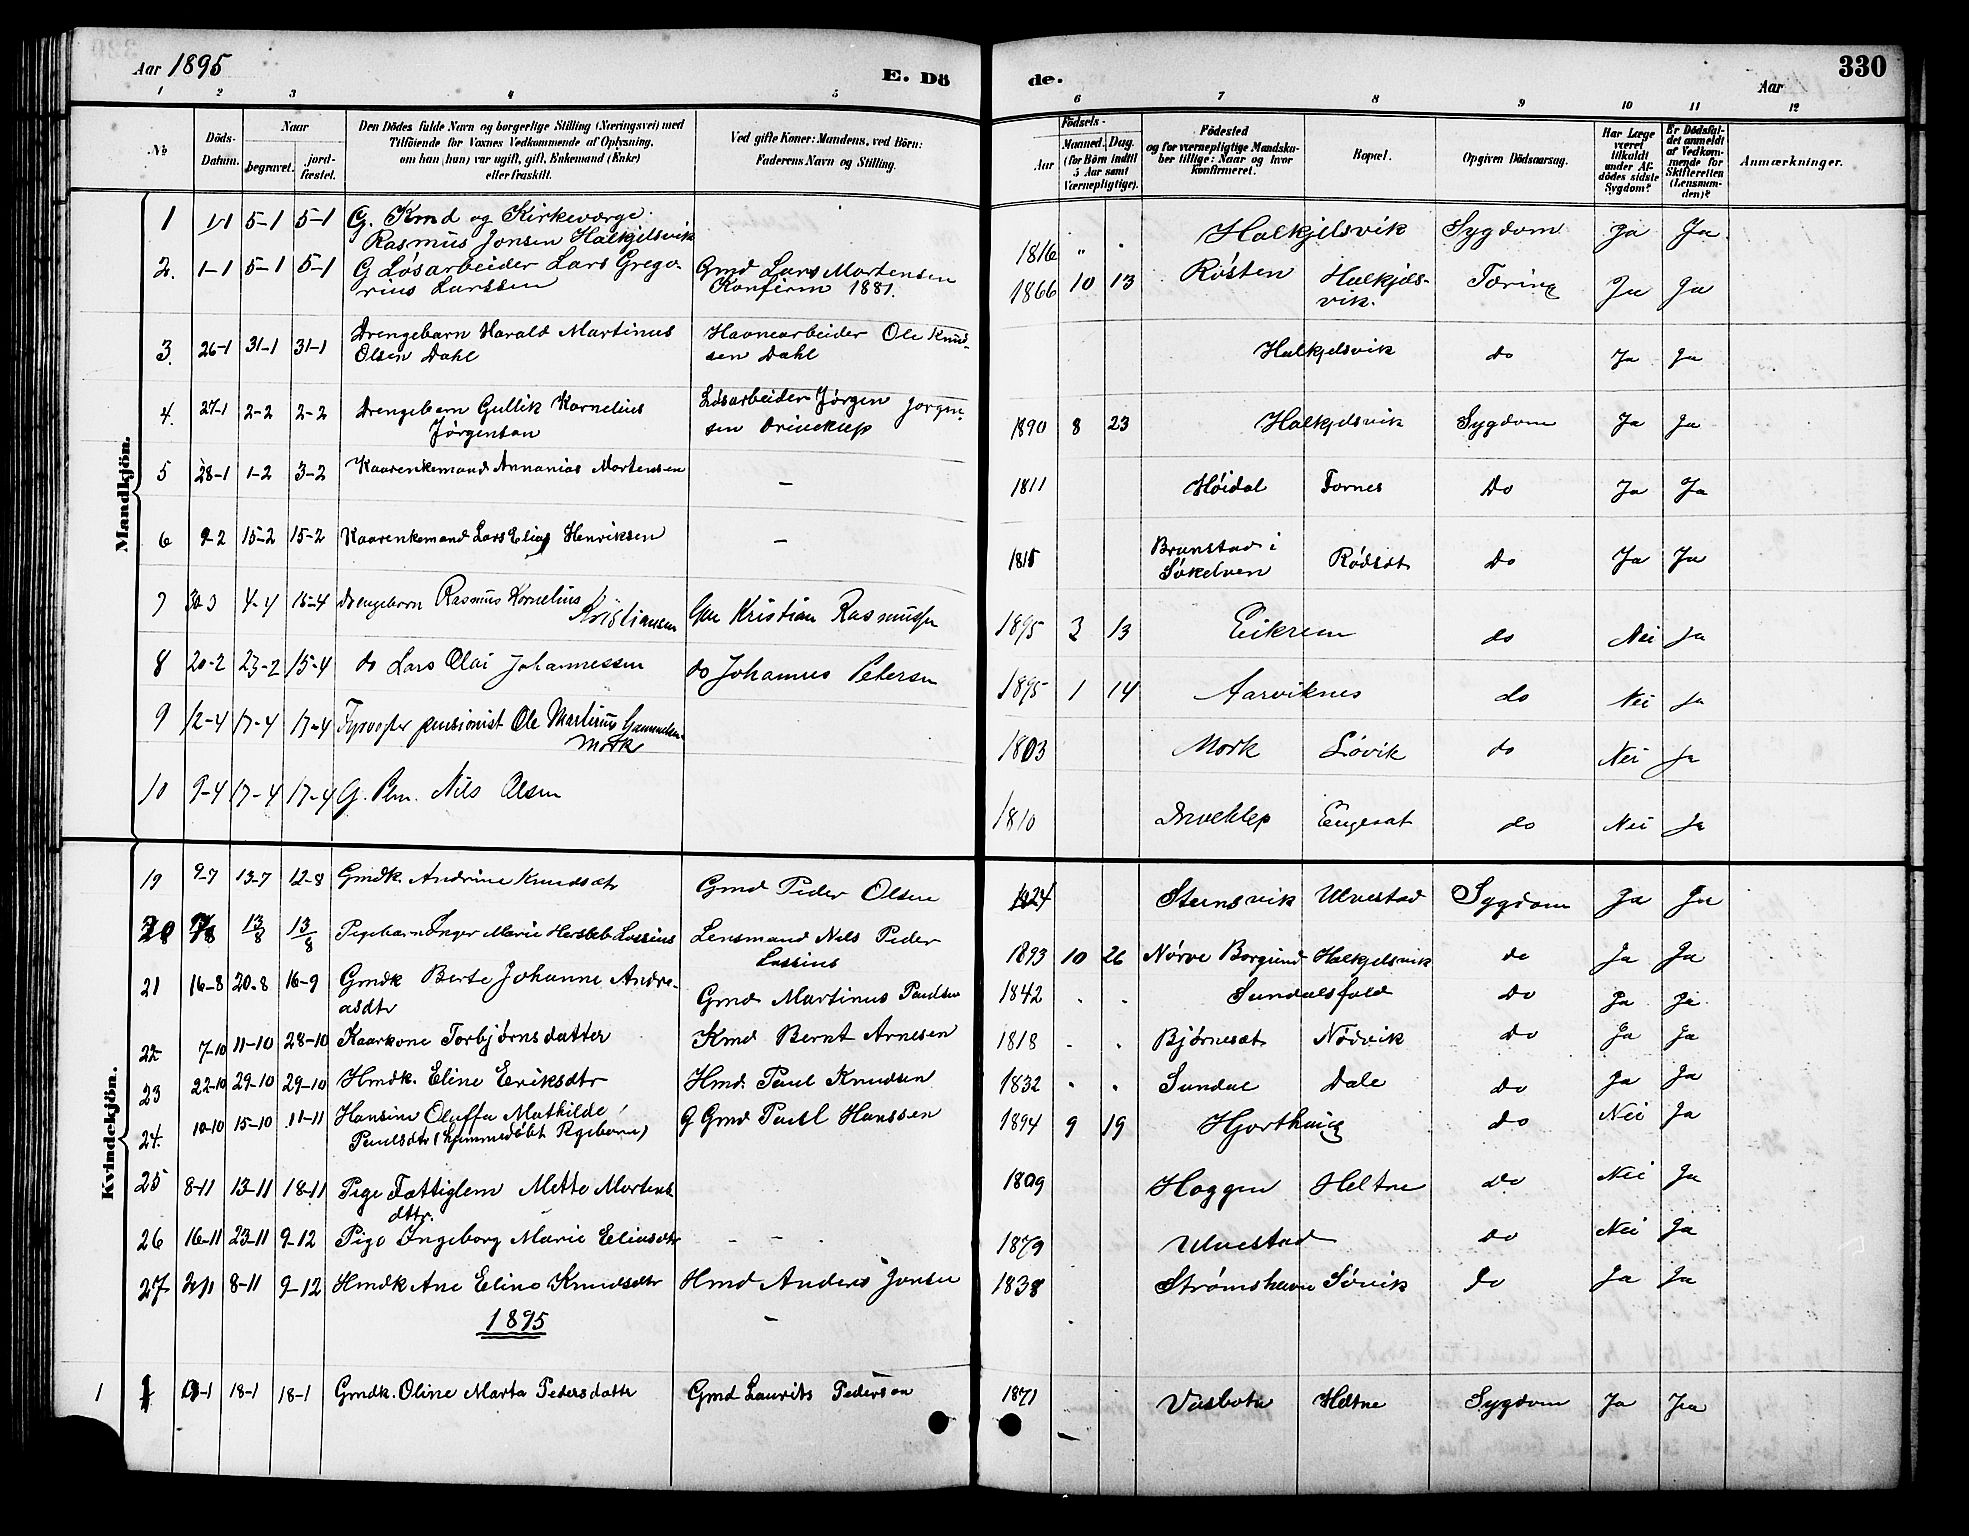 Aar 1895
E. Dö
de.
Aar
330
1 2 3 4 5 6 7 8 9 10 11 12
No
Döds-Datum.
Naar
begravet.
jord-fæstet.
Den Dödes fulde Navn og borgerlige Stilling (Næringsvei) med
Tilföiende for Voxnes Vedkommende af Oplysning,
om han (hun) var ugift, gift, Enkemand (Enke)
eller fraskilt.
Ved gifte Koner: Mandens, ved Börn:
Faderens Navn og Stilling.
Födsels-
Aar
Maaned. Dag.
(for Börn indtil
5 Aar samt
Værnepligtige).
Födested
og for værnepligtige Mandska-
ber tillige: Naar og hvor
konfirmeret.
Bopæl.
Opgiven Dödsaarsag.
Har Læge
været
tilkaldt
under Af-
dödes sidste
Sygdom?
Er Dödsfal-
det anmeldt
af Vedkom-
mende for
Skifteretten
(Lensman-
den)?
Anmærkninger.
Mandkjön.
1 1/1 5-1 5-1 G. Kmd og Kirkeværge
Rasmus Jonsen Halkjelsvik 1816 " " Halkjelsvik Sygdom Ja Ja
2. 1-1 5-1 5-1 G Løsarbeider Lars Grego- Gmd Lars Mortensen 1866 10 13 Røsten Halkjels- Tæring Ja Ja
rius Larssen Konfirm 1881. vik.
3. 26-1 31-1 31-1 Drengebarn Harald Martinus Havnearbeider Ole Knud- Halkjelsvik do Ja Ja
Olsen Dahl sen Dahl
4. 27-1 2-2 2-2 Drengebarn Gullik Kornelius Løsarbeider Jørgen Jørgen- 1890 8 23 Halkjelsvik Sygdom Ja Ja
Jørgensen sen Driveklep
5 28-1 1-2 3-2 Kaarenkemand Annanias Mortensen - 1811 Høidal Fornes Do Ja Ja
6 9-2 15-2 15-2 Kaarenkemand Lars Elias Henriksen - 1815 Brunstad i Rødsæt Do Ja Ja
Søkelven
7 30-3 4-4 15-4 Drengebarn Rasmus Kornelius Kristian Rasmussen 1895 3 13 Eikrem do Nei Ja
Kristiansen
8 20-2 23-2 15-4 do Lars Olai Johannessen do Johannes Petersen 1895 1 14 Aarviknes do Nei Ja
9 12-4 17-4 17-4 pensionist Ole Martinus 1803 Mork Løvik do Nei Ja
Mork
10 9-4 17-4 17-4 G. Nils Olsen 1810 Driveklep Engesæt do Nei Ja
Kvindekjön.
19 9-7 13-7 12-8 Gmdk. Andrine Knudsdtr Gmd Peder Olsen 1824 Stensvik Ulvestad Sygdom Ja Ja
20 7/8 13/8 13/8 Pigebarn Inger Marie Hersleb Lossius Lensmand Nils Peder 1893 10 26 Nørve Borgund Halkjelsvik do Ja Ja
Lossius
21 16-8 20-8 16-9 Gmdk Berte Johanne Andre- Gmd Martinus Paulsen 1842 . . Sundalsfold Do Ja Ja
asdtr
22 7-10 11-10 28-10 Kaarkone Torbjørnsdatter Kmd Bernt Arnesen 1818 - . Bjørnesæt Nødvik Do Ja Ja
23 22-10 29-10 29-10 Hmdk. Eline Eriksdtr Hmd. Paul Knudsen 1832 . . Sundal Dale Do Ja Ja
24. 10-10 15-10 11-11 Hansine Oluffa Mathilde G Gmd Paul Hanssen 1894 9 19 Hjorthaug do Nei Ja
Paulsdtr (hjemmedøbt Pigebarn)
25 8-11 13-11 18-11 Pige Fattiglem Mette Mortens 1809 Haggen Heltne Do Nei Ja
dttr.
26 16-11 23-11 9-12 Pige Ingeborg Marie Eliasdtr - - 1879 Ulvestad Do Nei Ja
27 2/11 8-11 9-12 Hmdk Ane Eline Knudsdtr Hmd Anders Jonsen 1838 Strømshavn Søvik Do Ja Ja
1895 -
1 1 -1 18-1 18-1 Gmdk. Oline Marta Pedersdattr Gmd Laurits Pedersen 1871 Vasbotn Heltne Sygdom Ja Ja